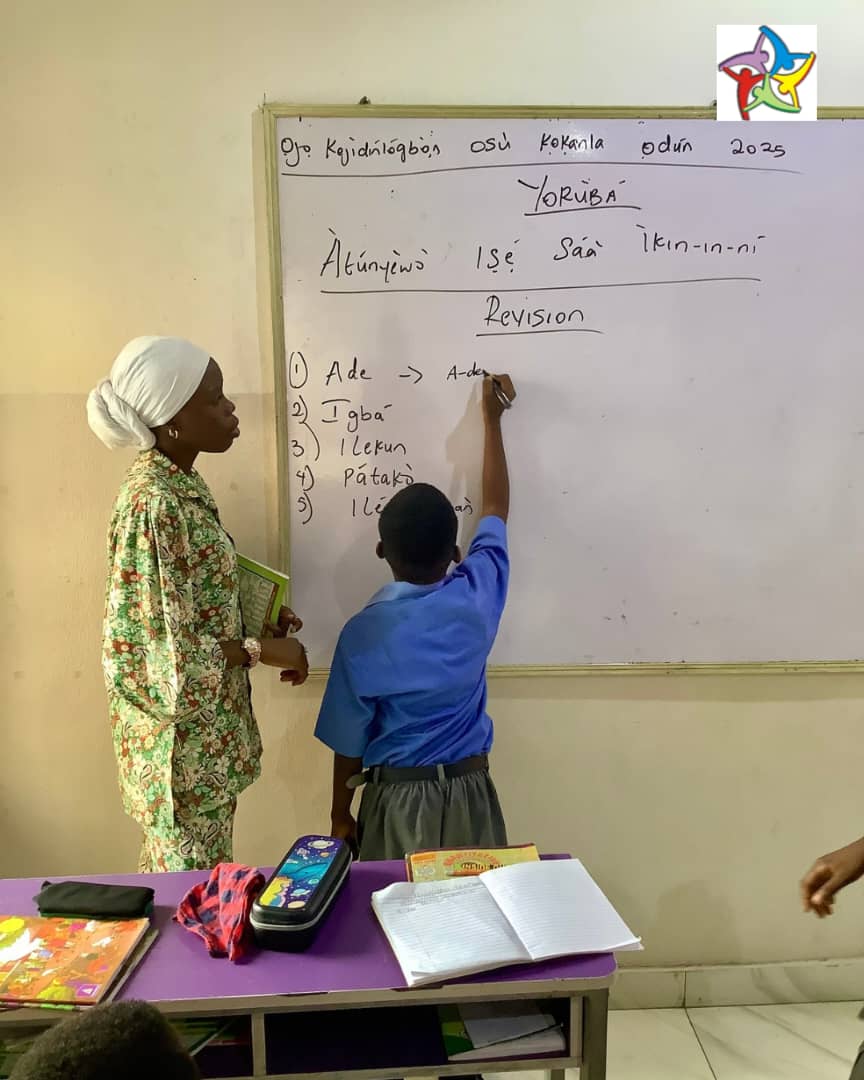 Ọjọ Kejìdńlógbọ̀n osù Kọkanla ọdún 2025
YORÙBÁ
Àtúnyẹ̀wò Iṣẹ́ Sáà Ìkín-ín-ní
Revision
1) Ade → A-de
2) Igbá
3) Ilekun
4) Pátakò
5) Ilé
INSIDE